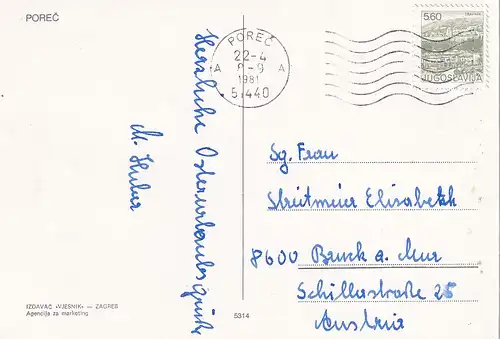 POREČ
Herzliche Osterurlaubsgrüße
M. Huber
IZDAVAČ »VJESNIK« — ZAGREB
Agencija za marketing
5314
POREČ
22-4
A 8-9 A
1981
51440
5.60
JUGOSLAVIJA
Sg. Frau
Streitmeier Elisabeth
8600 Bruck a. Mur
Schillerstraße 25
Austria